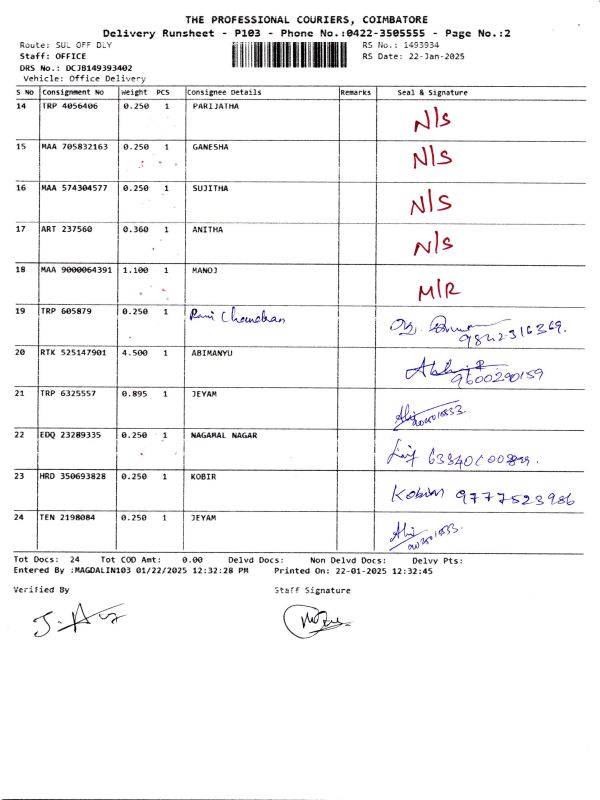 THE PROFESSIONAL COURIERS, COIMBATORE
Delivery Runsheet - P103 - Phone No.:0422-3505555 - Page No.:2
Route: SUL OFF DLY RS No.: 1493934
Staff: OFFICE RS Date: 22-Jan-2025
DRS No.: DCJB149393402
Vehicle: Office Delivery
S No Consignment No Weight PCS Consignee Details Remarks Seal & Signature
14 TRP 4056406 0.250 1 PARIJATHA N/S
15 MAA 705832163 0.250 1 GANESHA N/S
16 MAA 574304577 0.250 1 SUJITHA N/S
17 ART 237560 0.360 1 ANITHA N/S
18 MAA 9000064391 1.100 1 MANOJ M/R
19 TRP 605879 0.250 1 Rani Chandran
9842316369.
20 RTK 525147901 4.500 1 ABIMANYU
9600290159
21 TRP 6325557 0.895 1 JEYAM
22 EDQ 23289335 0.250 1 NAGAMAL NAGAR
23 HRD 350693828 0.250 1 KOBIR 9777523986
24 TEN 2198084 0.250 1 JEYAM
Tot Docs: 24 Tot COD Amt: 0.00 Delvd Docs: Non Delvd Docs: Delvy Pts:
Entered By :MAGDALIN103 01/22/2025 12:32:28 PM Printed On: 22-01-2025 12:32:45
Verified By Staff Signature